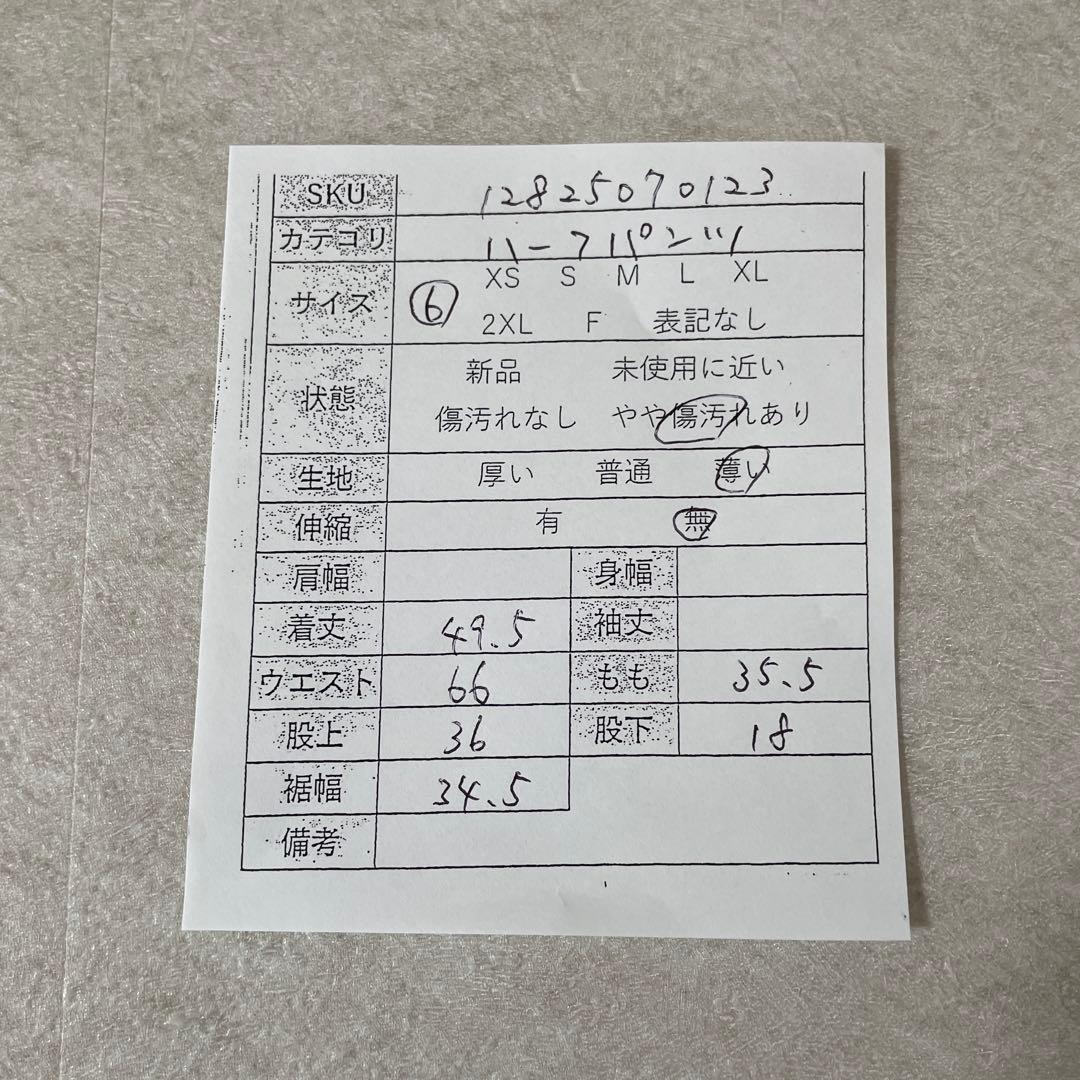 SKU 12825070123
カテゴリ ハーフパンツ
サイズ ⑥ XS S M L XL
2XL F 表記なし
状態 新品 未使用に近い
傷汚れなし やや傷汚れあり
生地 厚い 普通 薄い
伸縮 有 無
肩幅 身幅
着丈 49.5 袖丈
ウエスト 66 もも 35.5
股上 36 股下 18
裾幅 34.5
備考